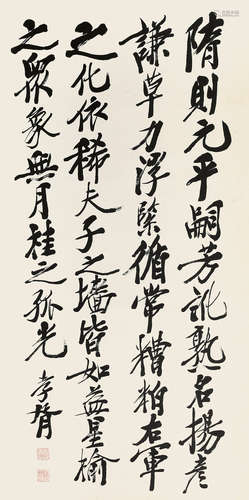 隋則元平嗣芳訛熟名揚彥
謙草力浮緊循常糟粕右軍
之化依稀夫子之墻皆如益星榆
之眾象無月桂之孤光 孝胥